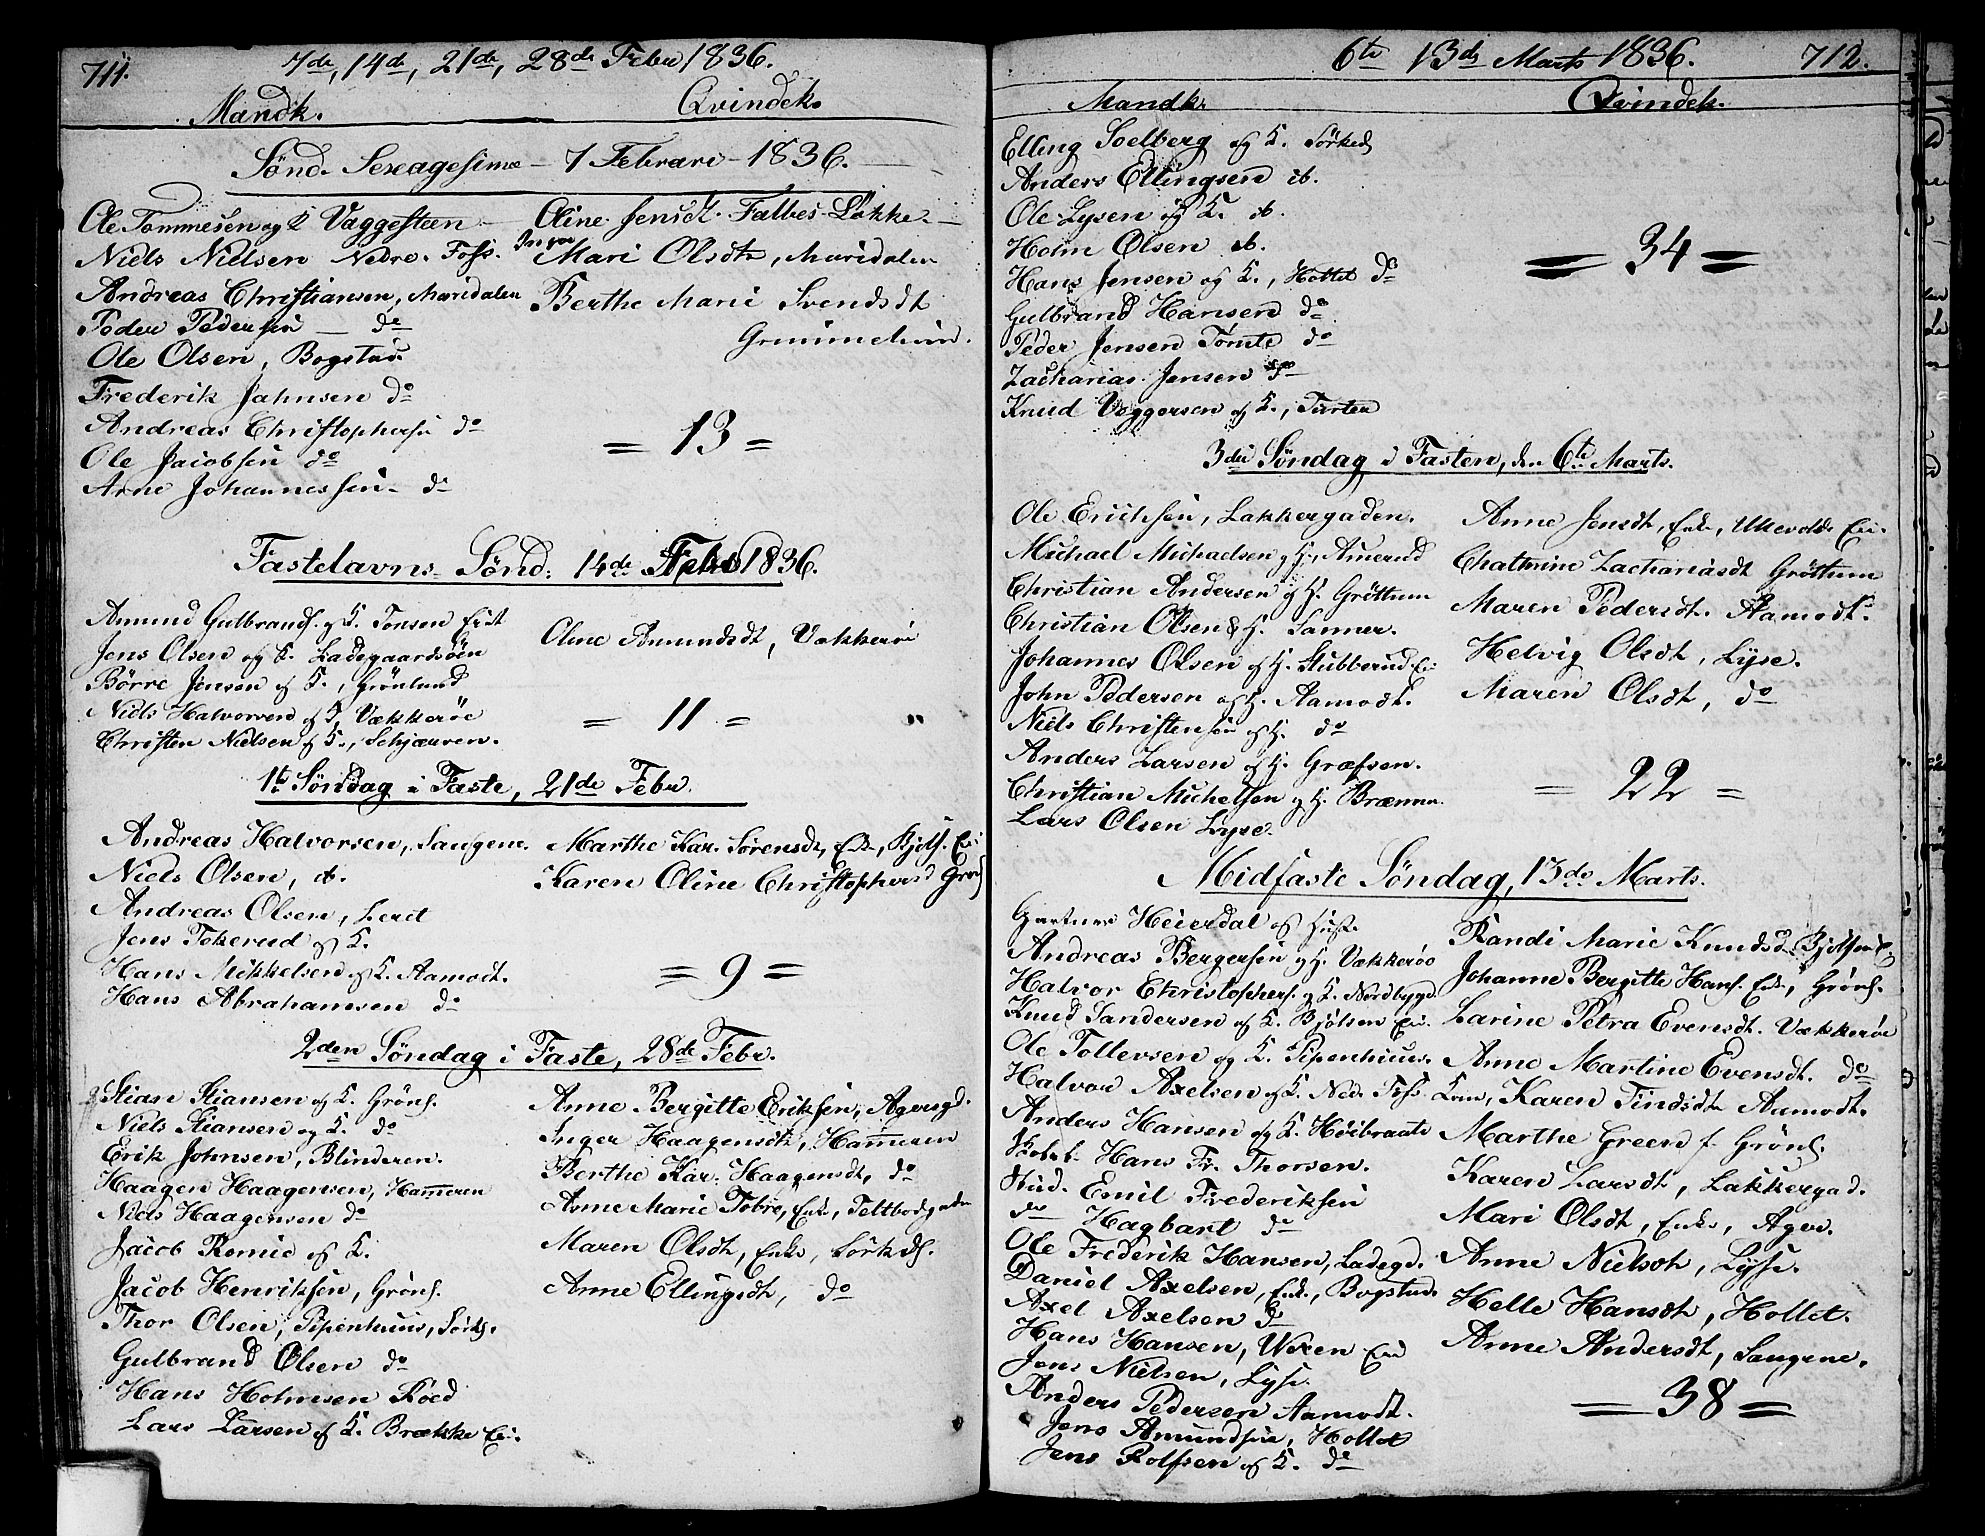 711.
7de, 14de, 21de, 28de Febr 1836.
Mandk. Qvindek.
Sønd. Sexagesimæ — 7 Februari — 1836.
Ole Tommesen og K Vaggesteen
Niels Nielsen Nedre Foss.
Andreas Christiansen, Maridalen
Peder Pedersen — do
Ole Olsen, Bogstad
Frederik Jahnsen do
Andreas Christophersen do
Ole Jacobsen do
Arne Johannessen do
Oline Jensdt. Falbes Løkke
Mari Olsdtr, Maridalen
Berthe Marie Svendsdt
= 13 =
Fastelavns Sønd: 14de Febr 1836.
Amund Gulbrands. og K. Tonsen Eiet
Jens Olsen og K. Ladegaardsøen
Børre Jensen og K., Grønlund
Niels Halvorsen og K. Vækkerøe
Christen Nielsen og K., Schjærven.
Oline Amundsdt, Vækkerøe
= 11 =
1te Søndag i Faste, 21de Febr.
Andreas Halvorsen, Saugene.
Niels Olsen, ib.
Andreas Olsen, Leret
Jens Tokerud og K.
Hans Mikkelsen og K. Aamodt.
Hans Abrahamsen do
Marthe Kar. Sørensdt, Enke, Bjøls. Ei
Karen Oline Christophersd Grøns
= 9 =
2den Søndag i Faste, 28de Febr.
Stian Stiansen og K. Grøns.
Niels Stiansen og K. do
Erik Johnsen, Blinderen.
Haagen Haagensen, Hammeren
Niels Haagensen do
Jacob Romie og K.
Jacob Henriksen, Grøns.
Thor Olsen, Pipenhuus, Sørk.
Gulbrand Olsen do
Hans Holmsen Røed
Lars Larsen og K. Brække Ei.
Anne Bergitte Eriksen, Agersgd.
Inger Haagensdt, Hammeren
Berthe Kar. Haagensdt, do
Anne Marie Tobre, Enke, Teltbodgaden
Maren Olsdt, Enke, Sørkds.
Anne Ellingsdt, do
6te 13de Marts 1836. 712.
Mandk. Qvindek.
Elling Soelberg og K. Sørked
Anders Ellingsen ib.
Ole Lysen og K. ib.
Holm Olsen ib.
Hans Jensen og K., Hollet do
Gulbrand Hansen do
Peder Jensen Tømte do
Zacharias Jensen do
Knud Vaggersen og K., Turter
= 34 =
3die Søndag i Fasten, den 6te Marts.
Ole Erichsen, Lakkergaden.
Michael Michaelsen og H., Amerud
Christian Andersen og H. Grøttum
Christian Olsen & H. Sanner.
Johannes Olsen og H. Stubberud Ei.
John Pedersen og H. Aamodt.
Niels Christensen og H. do
Anders Larsen og H. Græfsen.
Christian Michelsen og H. Brænna.
Lars Olsen Lyse.
Anne Jensdt, Enk., Ullevolds Ei.
Chathrine Zachariasdt Grøttum
Maren Pedersdt. Aamodt.
Helvig Olsdt, Lyse.
Maren Olsdt, do
= 22 =
Midfaste Søndag, 13de Marts.
Gartner Heierdal og Hust.
Andreas Bergersen og H. Vækkerøe
Halvor Christophers. og K. Nordbygd
Knud Sandersen og K. Bjølsen Ei.
Ole Tollevsen og K. Pipenhuus.
Halvor Axelsen og K. Ned. Foss
Anders Hansen og K. Høibraate
Hans Fr. Thorsen.
Stud. Emil Frederiksen
do Hagbart do
Ole Frederik Hansen, Ladegd.
Daniel Axelsen, Enk., Bogstad
Axel Axelsen do
Hans Hansen, Wøien Eie
Jens Nielsen, Lyse.
Anders Pedersen Aamodt.
Jens Amundsen, Hollet
Jens Rolfsen og K. do
Randi Marie Knudsd. Bjølsen E
Johanne Bergitte Hans. Enk., Grøns.
Larine Petra Evensdt. Vækkerøe
Anne Martine Evensdt. do
Karen Findsdtr Aamodt.
Marthe Green f. Grøns.
Karen Larsdt, Lakkergad.
Mari Olsdt, Enke, Ager.
Anne Nielsdt, Lyse.
Helle Hansdt, Hollet.
Anne Andersdt, Saugene.
= 38 =